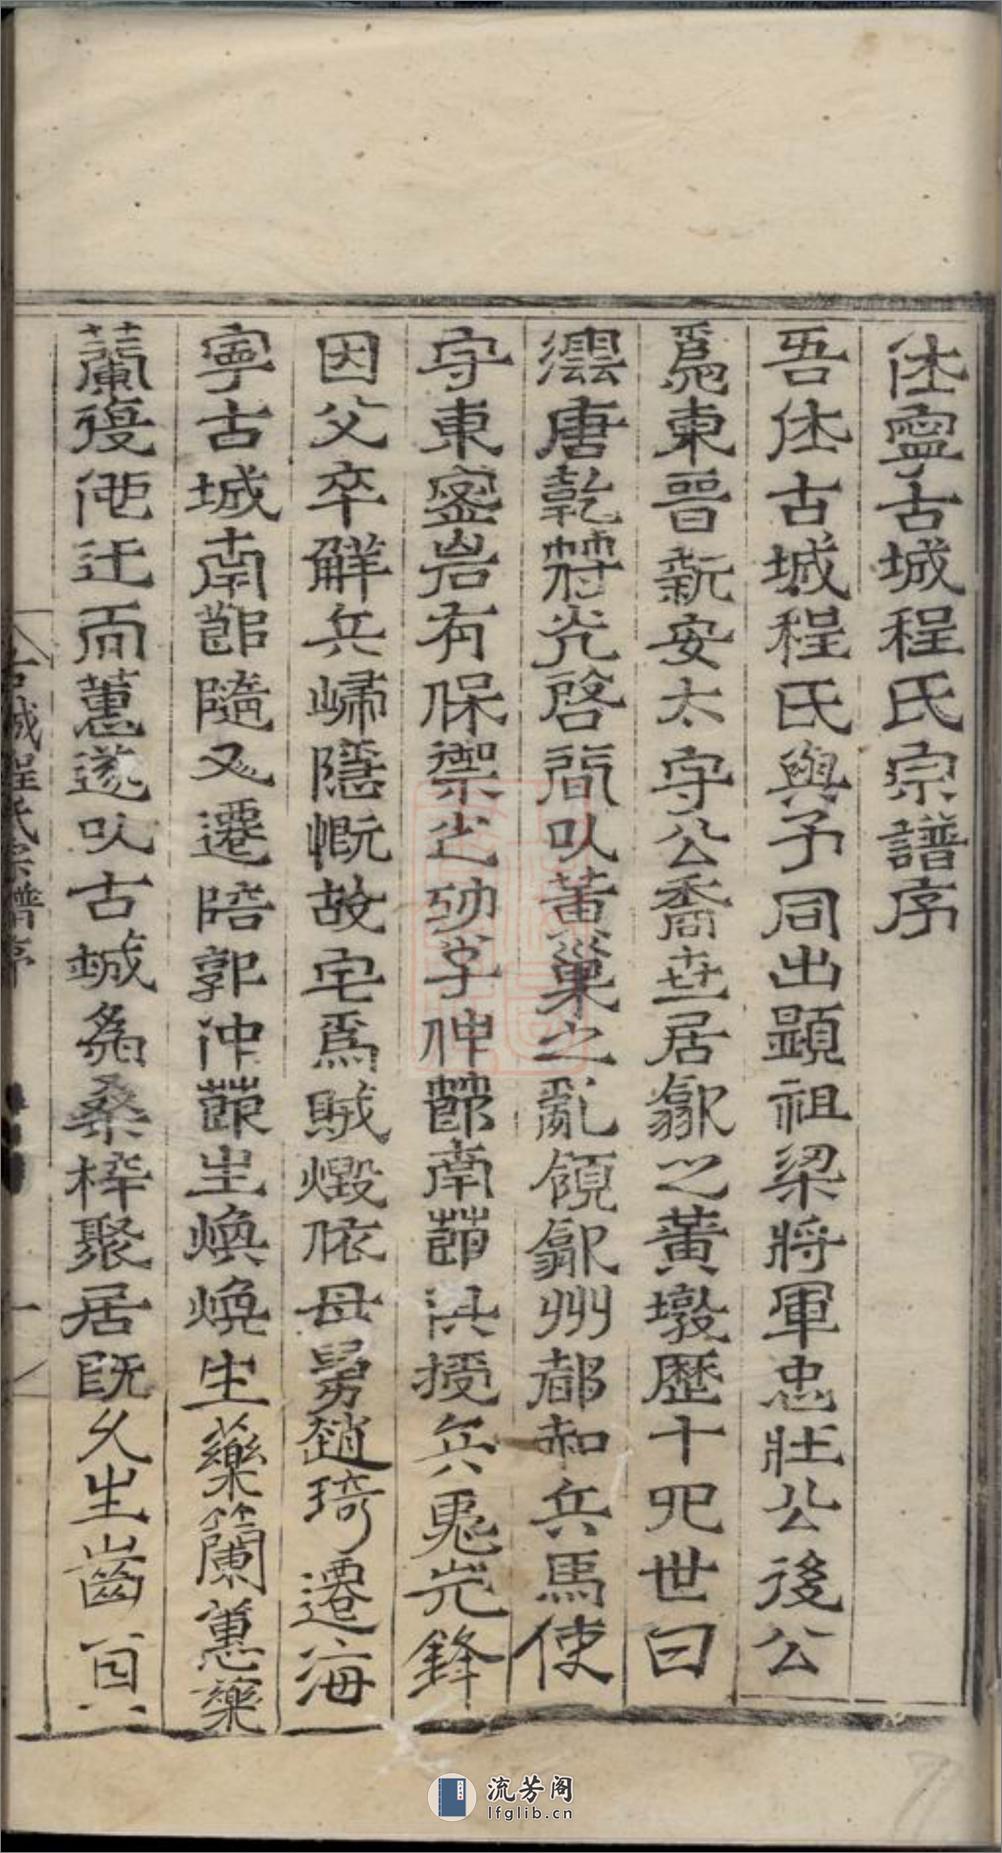 休寧古城程氏宗譜序
吾休古城程氏與予同出顯祖梁將軍忠壯公後公
爲東晉新安太守公喬世居歙之黃墩歷十九世曰
澐唐乾符光啓間以黃巢之亂領歙州都知兵馬使
守東密岩有保禦之功子仲繁南節洪授兵馬先鋒
因父卒解兵歸隱慨故宅爲賊燬依母舅趙琦遷海
寧古城南節隨又遷陪郭冲節生煥煥生藥蘭蕙藥
蘭復他迁而蕙遂以古城爲桑梓聚居既久生齒頁
古城程氏宗譜序
一
流芳阁
lfglib.cn